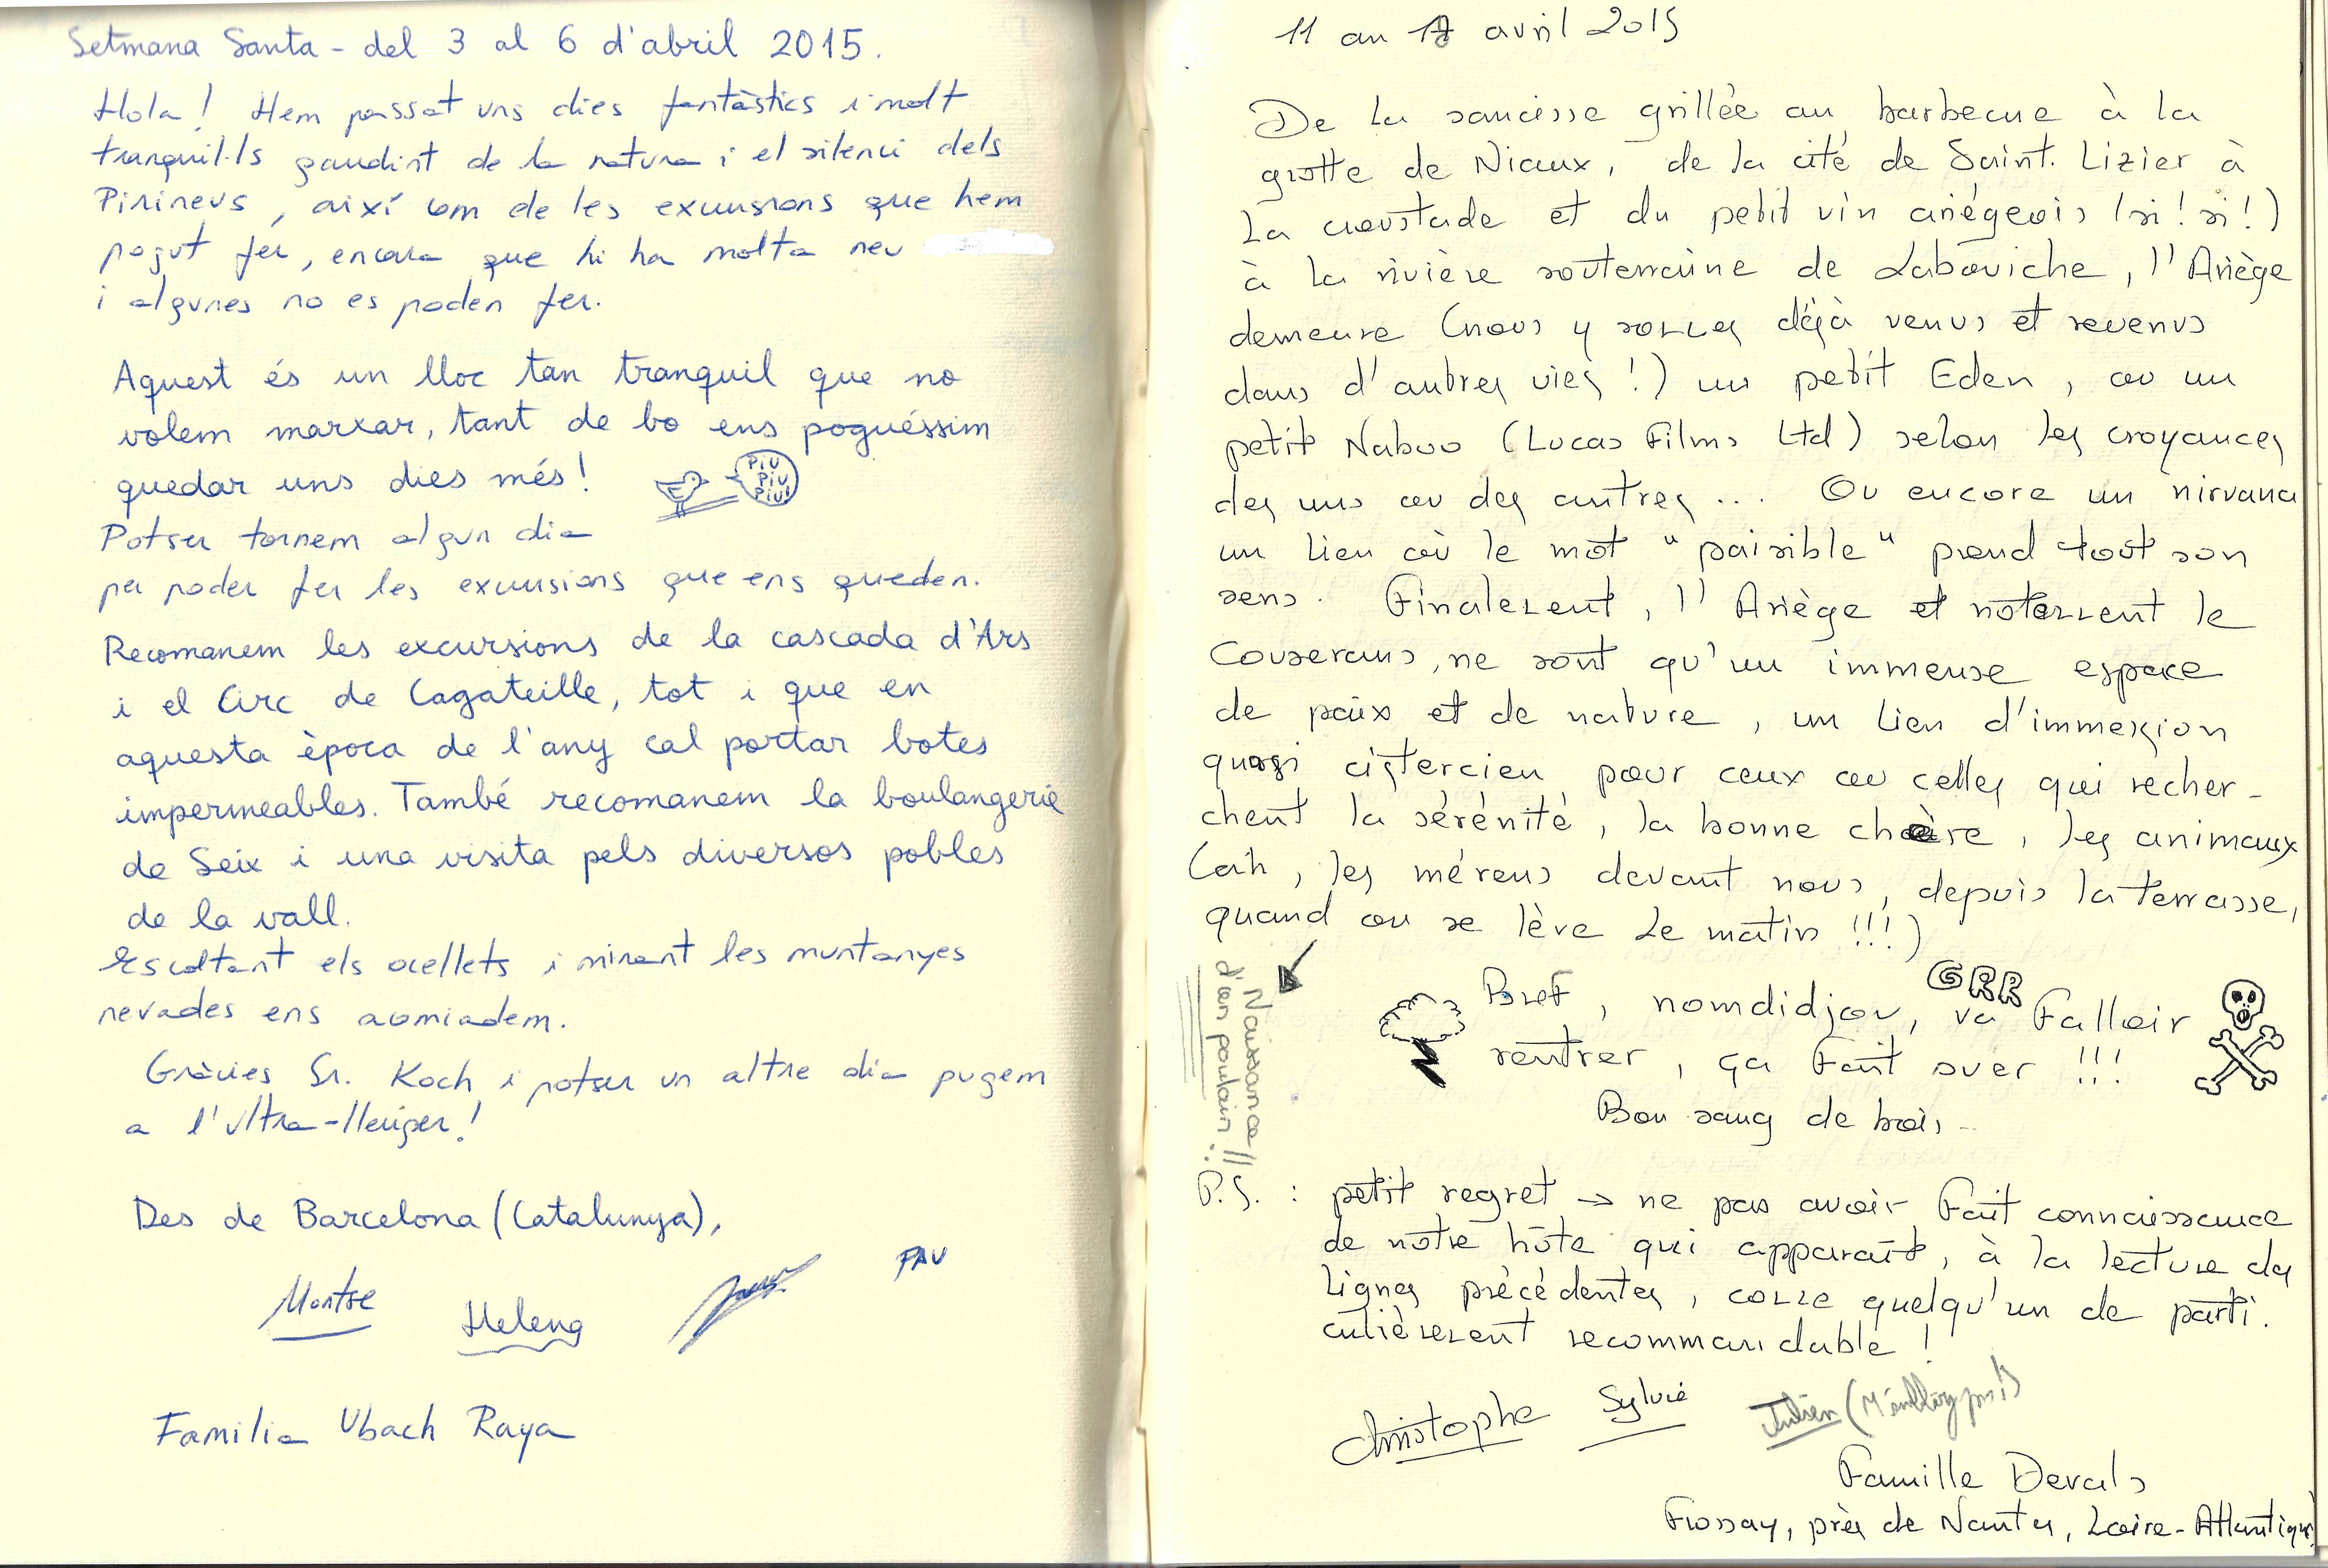 Setmana Santa - del 3 al 6 d'abril 2015.
Hola! Hem passat uns dies fantàstics i molt
tranquil·ls gaudint de la natura i el silenci dels
Pirineus, així com de les excursions que hem
pogut fer, encara que hi ha molta neu
i algunes no es poden fer.
Aquest és un lloc tan tranquil que no
volem marxar, tant de bo ens poguéssim
quedar uns dies més!
PIU
PIU
PIU!
Potser tornem algun dia
per poder fer les excursions que ens queden.
Recomanem les excursions de la cascada d'Ars
i el Circ de Cagateille, tot i que en
aquesta època de l'any cal portar botes
impermeables. També recomanem la boulangerie
de Seix i una visita pels diversos pobles
de la vall.
Escoltant els ocellets i mirant les muntanyes
nevades ens acomiadem.
Gràcies Sr. Koch i potser un altre dia pugem
a l'ultra-lleuger!
Des de Barcelona (Catalunya),
Montse
Helena
PAU
Familia Ubach Raya
11 au 17 avril 2015
De la saucisse grillée au barbecue à la
grotte de Niaux, de la cité de Saint. Lizier à
la croustade et du petit vin ariégeois (si! si!)
à la rivière souterraine de Labouiche, l'Ariège
demeure (nous y sommes déjà venus et revenus
dans d'autres vies!) un petit Eden, ou un
petit Naboo (Lucas Films Ltd) selon les croyances
des uns ou des autres... Ou encore un nirvana
un lieu où le mot "paisible" prend tout son
sens. Finalement, l'Ariège et notamment le
Couserans, ne sont qu'un immense espace
de paix et de nature, un lieu d'immersion
quasi cistercien pour ceux ou celles qui recher-
chent la sérénité, la bonne chère, les animaux
(ah, les mérens devant nous, depuis la terrasse,
quand on se lève le matin !!!)
Naissance
d'un poulain!!
GRR
Bref, nomdidjou, va falloir
rentrer, ça fait suer !!!
Bon sang de bois..
P.S. : petit regret → ne pas avoir fait connaissance
de notre hôte qui apparaît, à la lecture des
lignes précédentes, comme quelqu'un de parti.
culièrement recommandable!
Christophe
Sylvie
Julien (M'oubliez pas!)
Famille Devals
Frossay, près de Nantes, Loire-Atlantique